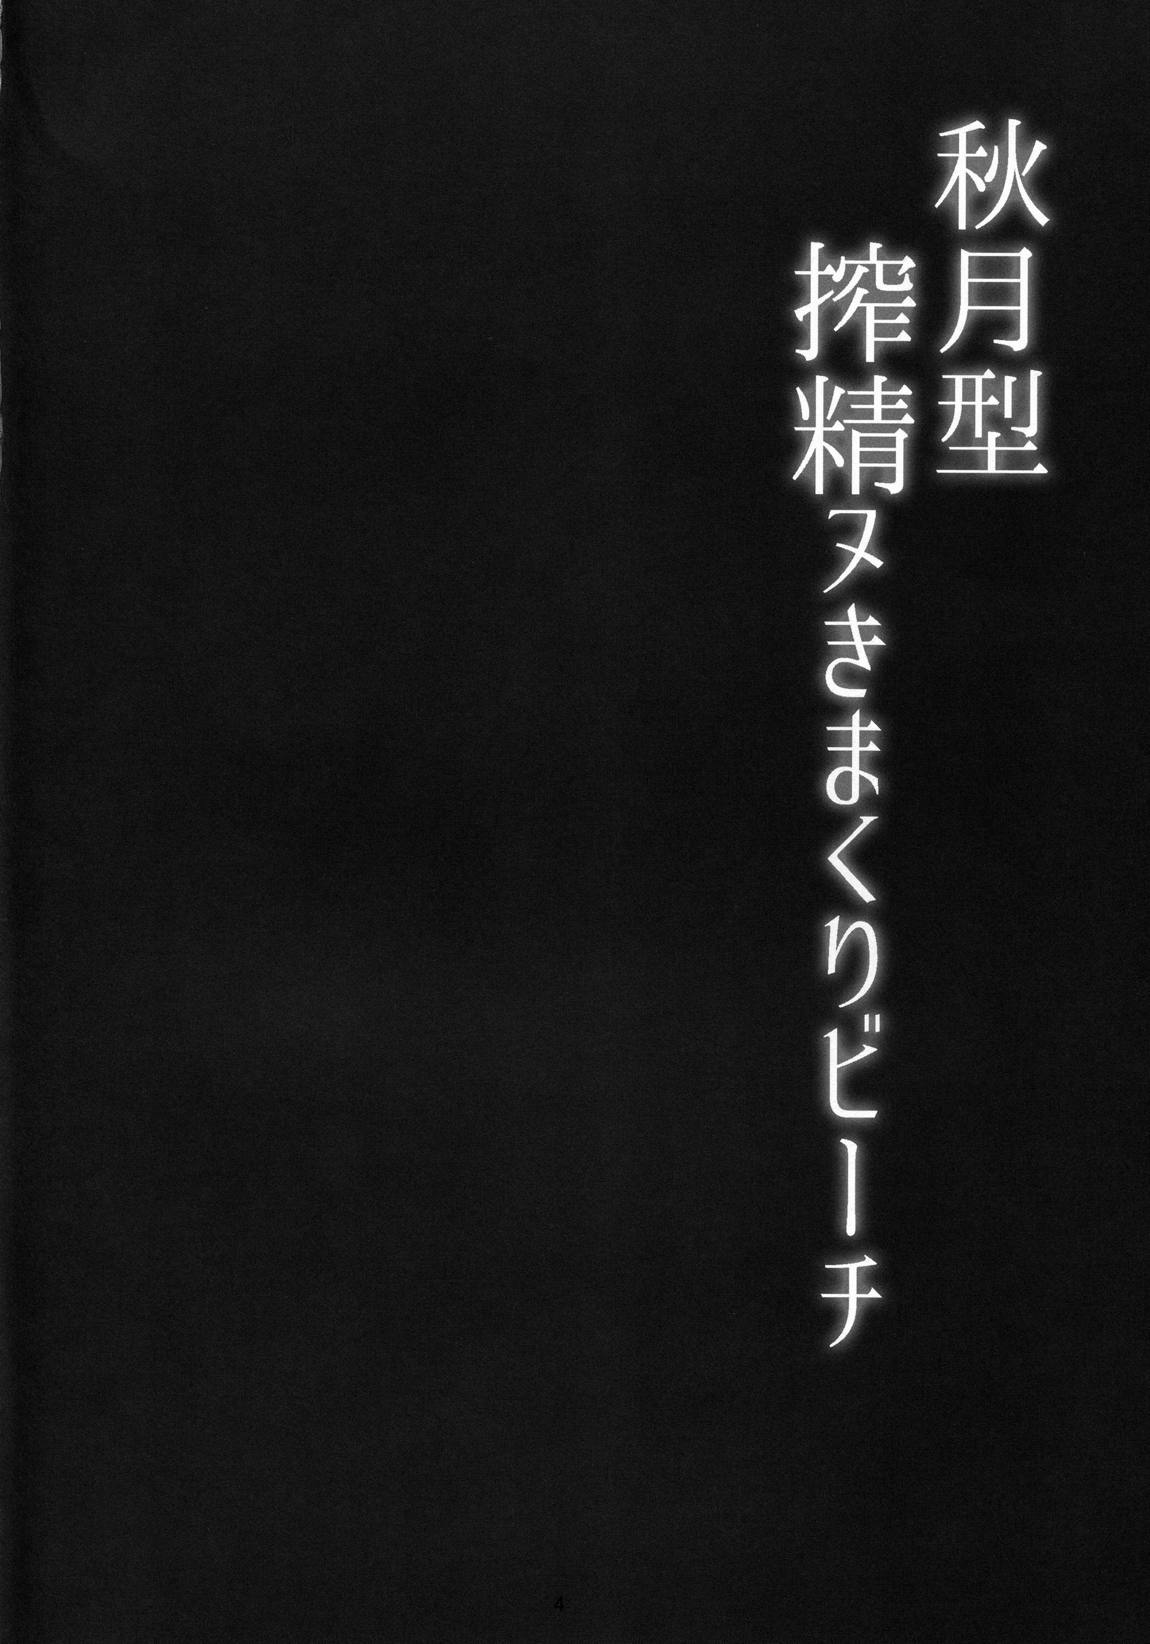 秋月型
搾精ヌきまくりビーチ
4